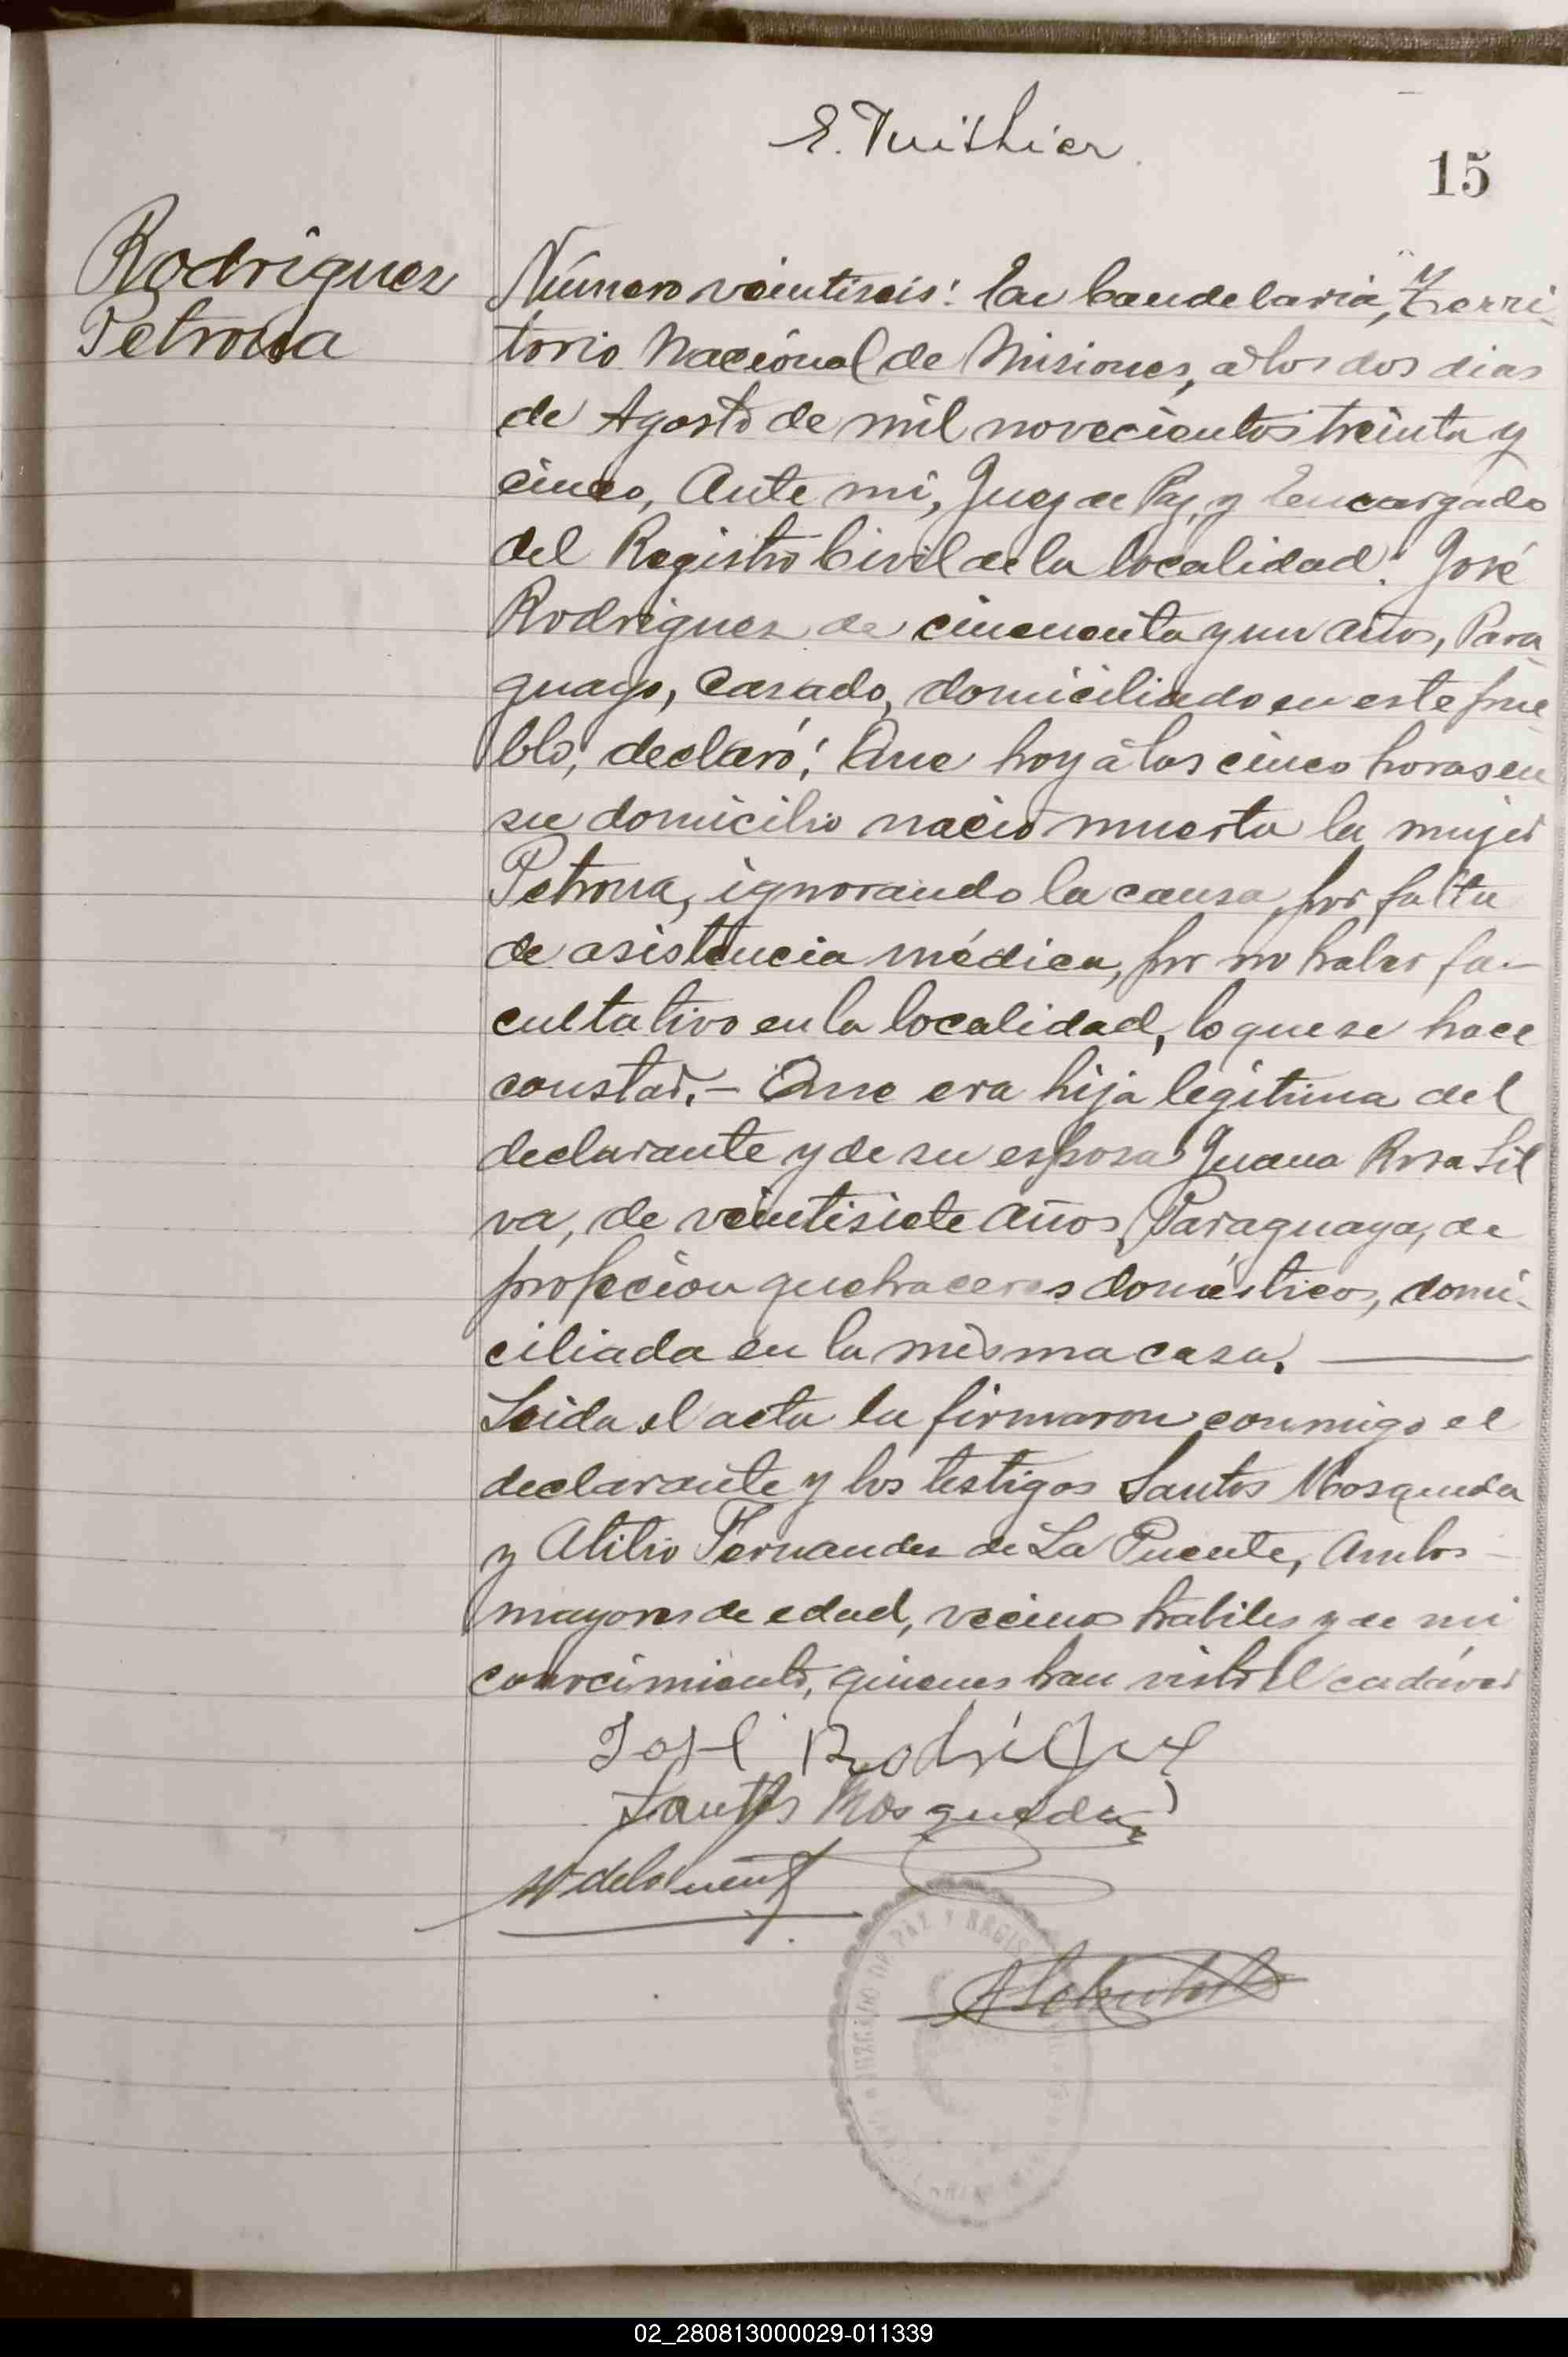 15
Rodriguez
Petrona
Número veintiseis: En Candelaria, Terri-
torio Nacional de Misiones, a los dos dias
de Agosto de mil novecientos treinta y
cinco, Ante mi, Juez de Paz, y Encargado
del Registro Civil de la localidad: José
Rodriguez de cincuenta y un años, Para-
guayo, Casado, domiciliado en este pue-
blo, declaró: Que hoy á las cinco horas en
su domicilio nació muerta la mujer
Petrona, ignorando la causa, por falta
de asistencia médica, por no haber fa-
cultativo en la localidad, lo que se hace
constar.- Que era hija legitima del
declarante y de su esposa Juana Rosa Sil
va, de veintisiete años, Paraguaya, de
profecion quehaceres domésticos, domi-
ciliada en la misma casa. ———
Leida el acta la firmaron conmigo el
declarante y los testigos Santos Mosqueda
y Atilio Fernandez de La Puente, Ambos
mayores de edad, vecinos habiles y de mi
conocimiento, quienes han visto el cadáver
José Rodriguez
Santos Mosqueda
JUZGADO DE PAZ Y REGIS
02_280813000029-011339